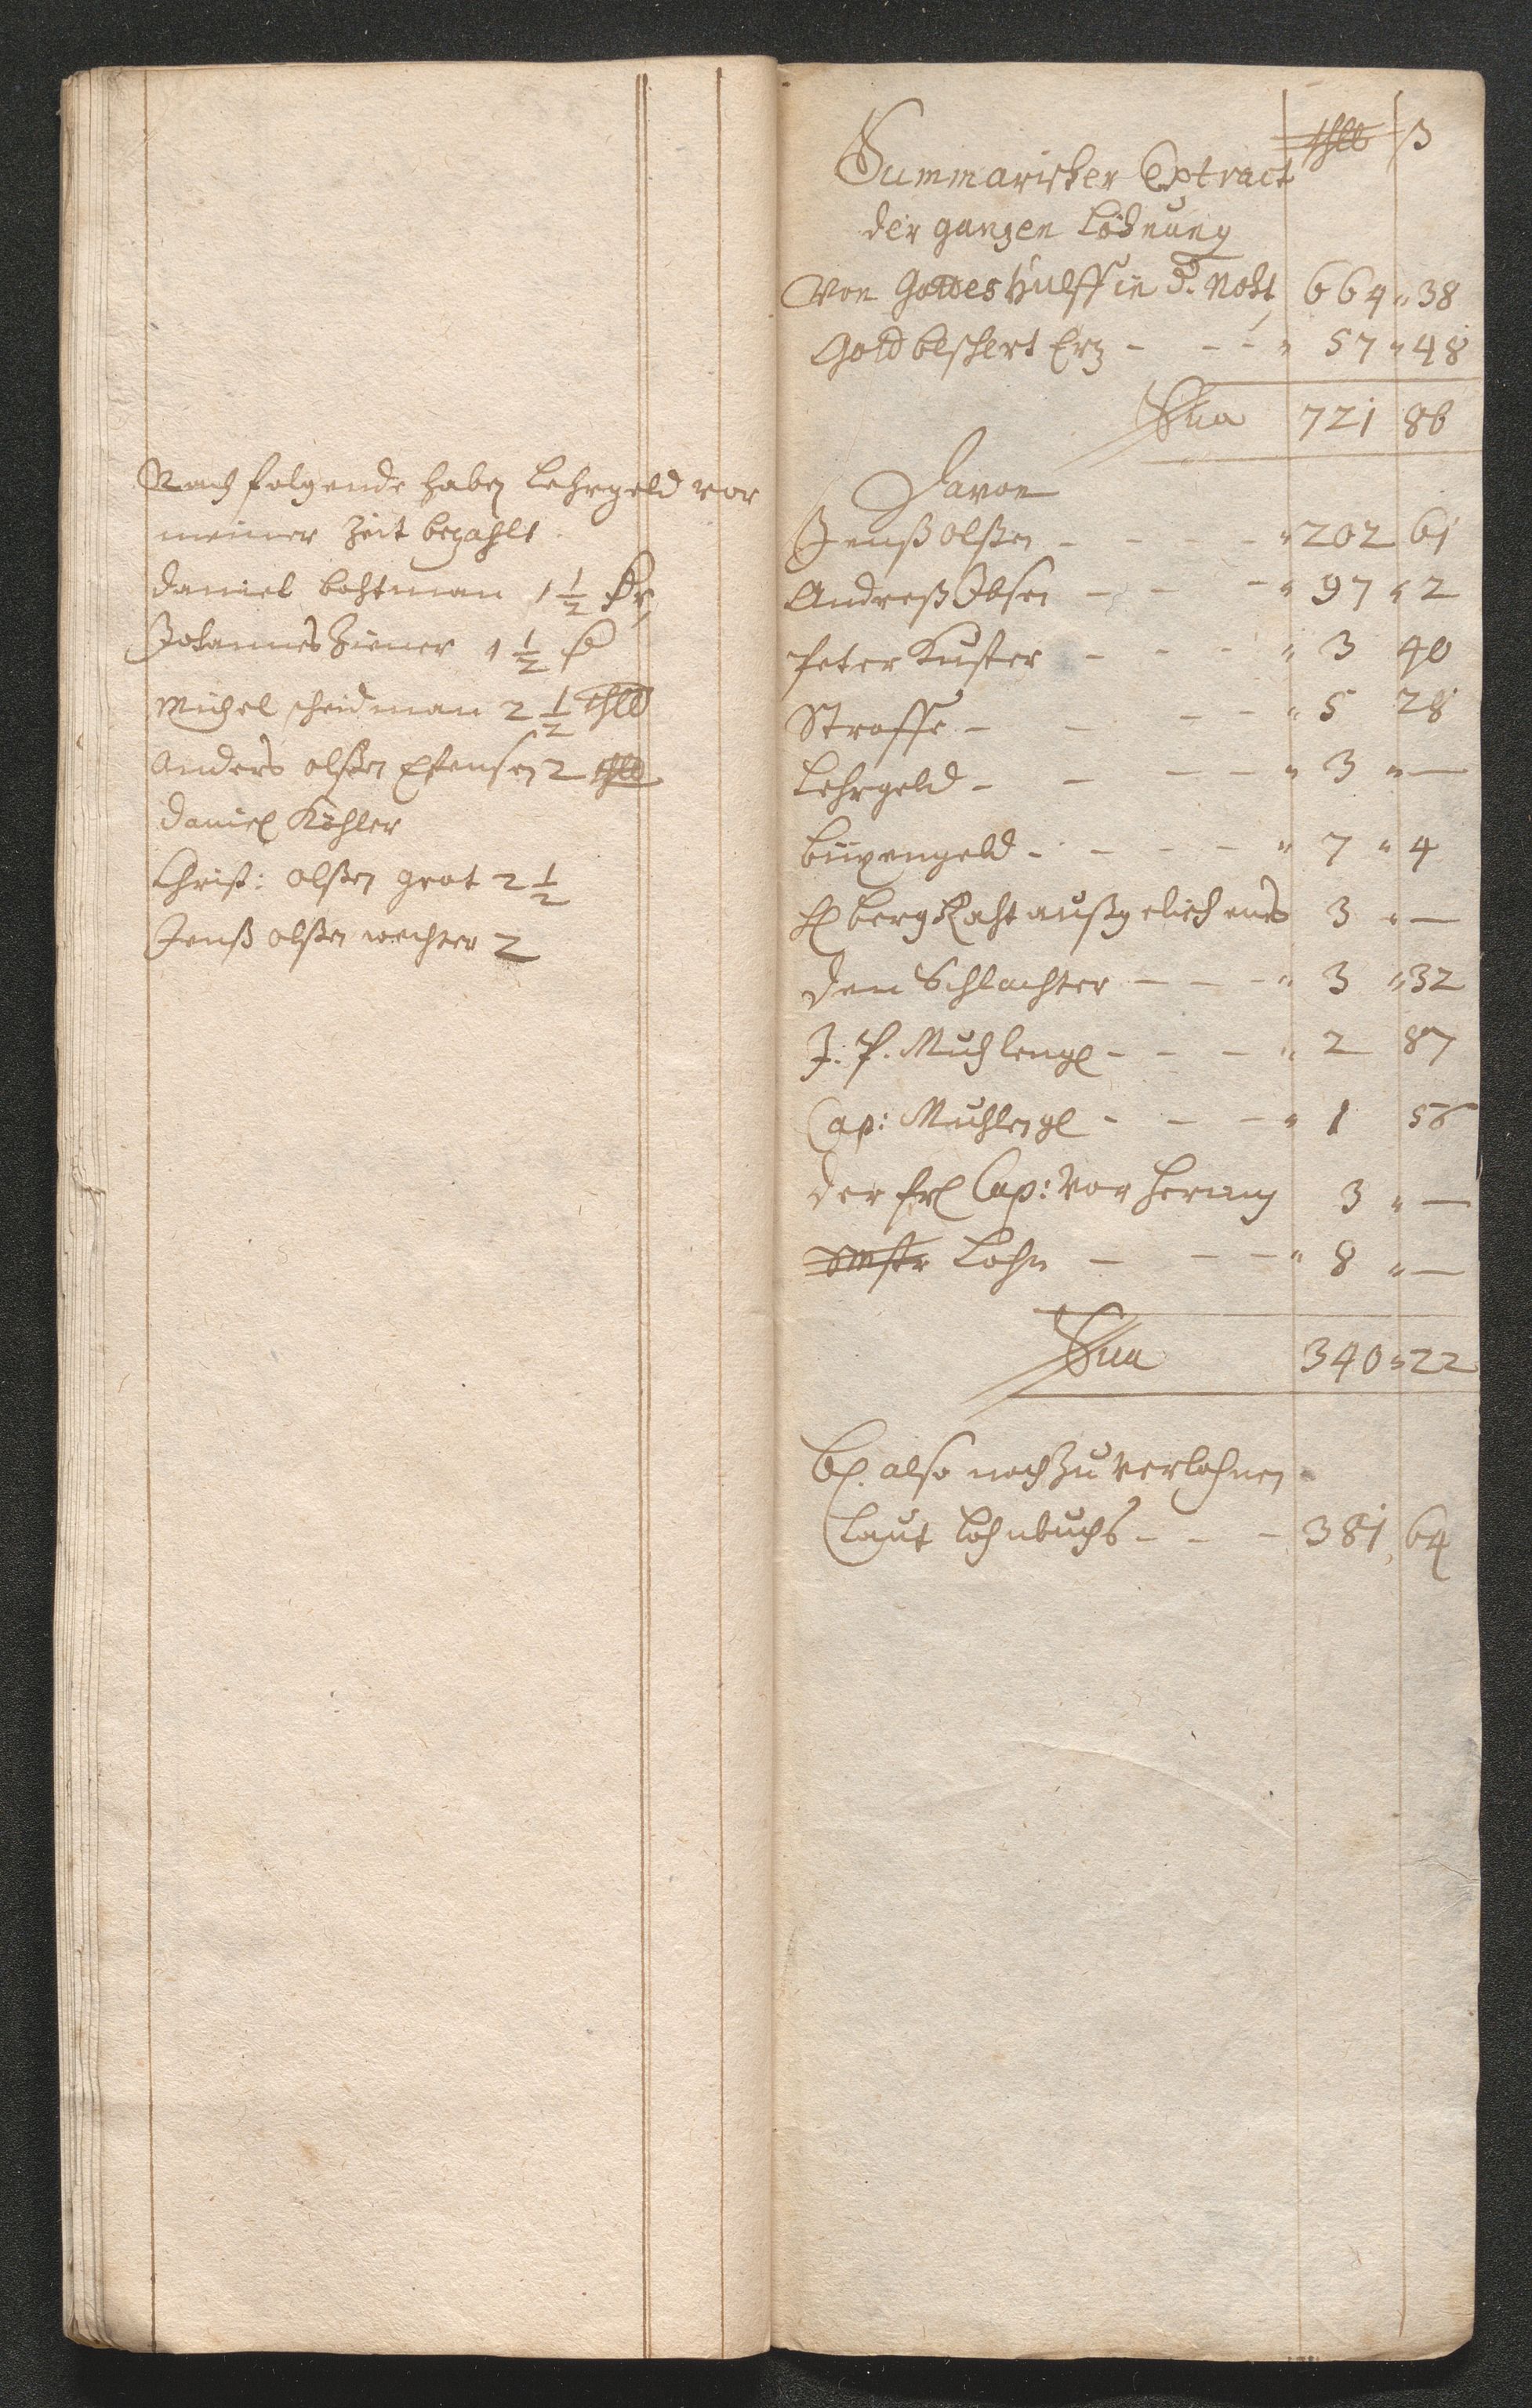 Nachfolgende haben Lehrgeld vor
meiner Zeit bezahlt
Daniel bohtman 1 1/2
Johannes Ziener 1 1/2
Michel scheidman 2 1/2 thlr
Anders olsen 2 thlr
Daniel Köhler
Christ: olsen grot 2 1/2
Jenß olsen wechter 2
thlr ß
Summarischer Extract
der ganzen Löhnung
Von Gottes Hulff in d. Noht 664 " 38
Gott beschert Erz - - - " 57 " 48
Sua 721 86
Davon
Jenß olsen - - - - " 202 61
Andreß Ibsen - - - " 97 " 2
Peter Kuster - - - " 3 40
Straffe - - - - " 5 28
Lehrgeld - - - - " 3 " —
büxengeld - - - - " 7 " 4
H berg Raht außgelich 3 " —
den Schlachter - - - " 3 " 32
J. P. Muhlengl - - - " 2 87
Cap: Muhlengl - - - " 1 56
der frl Cap: vor hering 3 " —
Lohn - - - " 8 " —
Sua 340 " 22
bl. also noch zu verlohnen
laut lohnbuchs - - - 381 64